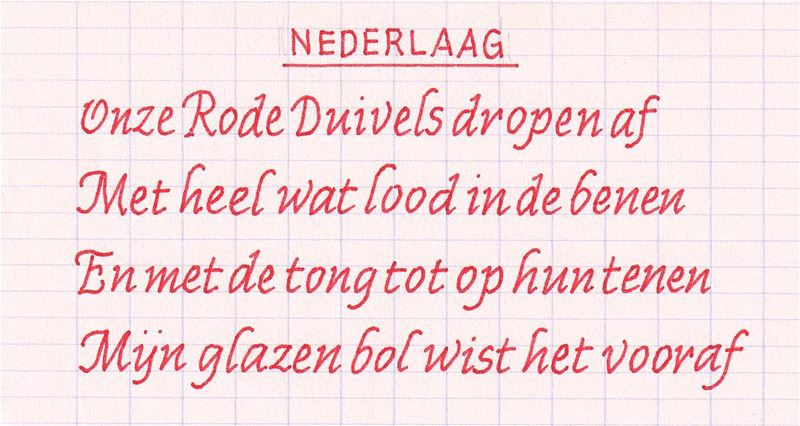 NEDERLAAG
Onze Rode Duivels dropen af
Met heel wat lood in de benen
En met de tong tot op hun tenen
Mijn glazen bol wist het vooraf